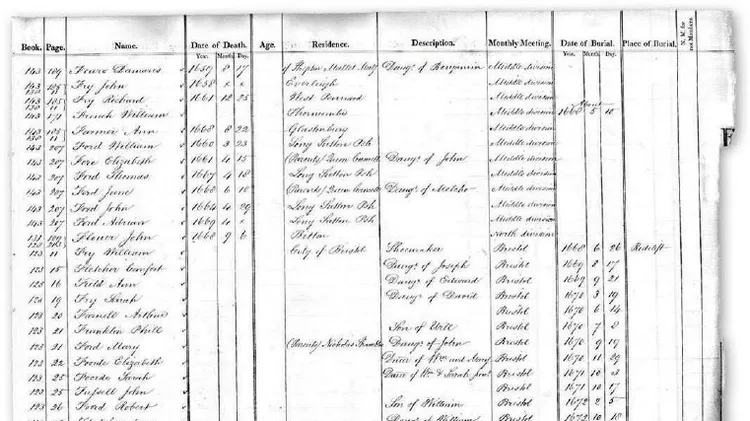 Book. Page. Name. Date of Death. Age. Residence. Description. Monthly Meeting. Date of Burial. Place of Burial. N. M. for not Members.
Year. Month. Day. Year. Month. Day.
143 189 Damaris 1657 8 17 of Shepton Mallet Daugr. of Benjamin Middle division
143 Fry John 1658 x x Everleigh Middle division
143 105 Fry Richard 1661 12 25 West Pennard Middle division
About
143 171 French William Middle division 1668 5 10
143 105 Farmer Ann 1668 8 22 Glastenbury Middle division
143 207 Ford William 1660 3 23 Long Sutton Psh Middle division
143 207 Fore Elizabeth 1661 4 15 (Parents) Queen Cammell Daugr. of John Middle division
143 207 Ford Thomas 1667 4 18 Long Sutton Psh Middle division
143 207 Ford Jane 1668 6 10 (Parents) Queen Cammell Daugr. of Middle division
143 207 Ford John 1664 4 29 Long Sutton Psh Middle division
143 207 Ford Adrian 1669 4 x Long Sutton Psh Middle division
131 Flower John 1668 9 6 North division
123 11 Fry William City of Bristol Shoemaker Bristol 1668 6 26 Redclift
123 15 Fletcher Comfort Daugr. of Joseph Bristol 1669 8 17
123 16 Field Ann Daugr. of Edward Bristol 1669 9 21
123 19 Fry Sarah Daugr. of David Bristol 1670 3 19
123 20 Farnell Arthur Bristol 1670 6 14
123 21 Franklin Phill Son of Will Bristol 1670 7 2
123 21 Ford Mary (Parents) Nicholas Daugr. of John Bristol 1670 9 19
123 22 Foorde Elizabeth Daur of Wm and Mary Bristol 1670 11 29
123 25 Foorde Sarah Daur of Wm & Sarah Bristol 1671 10 3
123 25 Fussell John Bristol 1671 10 17
123 26 Foord Robert Son of William Bristol 1672 2 5
Daugr. of William Bristol 1672 10 18